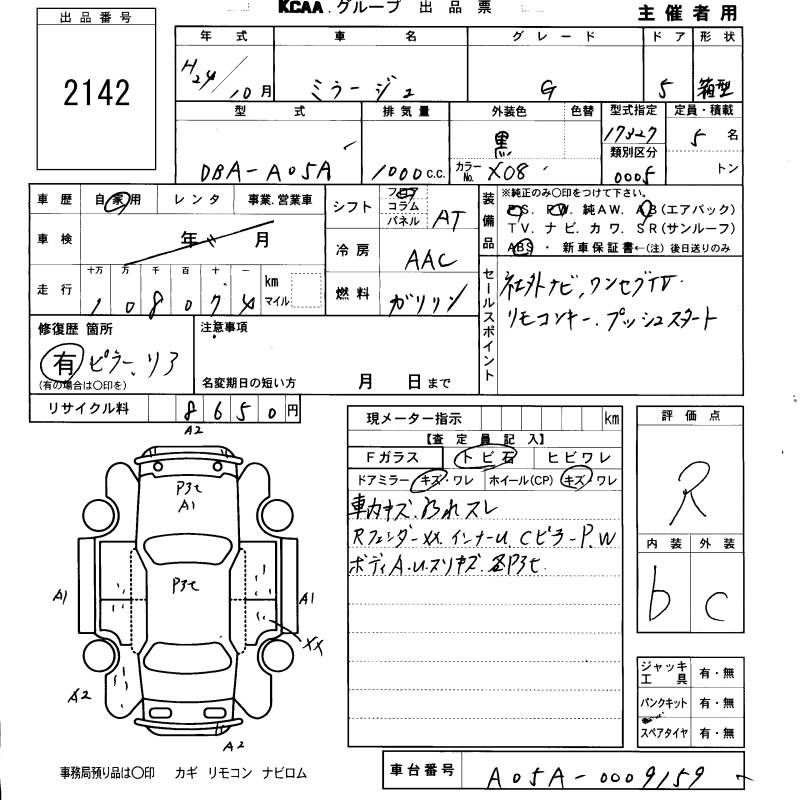 KCAA.グループ 出品票
主催者用
出品番号
2142
年式 車名 グレード ドア 形状
H24/10月 ミラージュ G 5 箱型
型式 排気量 外装色 色替 型式指定 定員・積載
DBA-A05A 1000c.c. 黒 カラーNo. X08 17327 5名
類別区分 0005 トン
車歴 自家用 レンタ 事業.営業車
車検 年 月
走行 十万 万 千 百 十 一 km マイル
108074
シフト フロア コラム パネル AT
冷房 AAC
燃料 ガソリン
装備品 ※純正のみ〇印をつけて下さい。
P.S. P.W. 純AW. A.B(エアバック)
TV. ナビ. カワ. SR(サンルーフ)
ABS ・ 新車保証書←(注) 後日送りのみ
セールスポイント
社外ナビ,ワンセグTV.
リモコンキー.プッシュスタート
修復歴 箇所
有 ピラー、リア
(有の場合は〇印を)
注意事項
名変期日の短い方 月 日まで
リサイクル料 8650円
現メーター指示 km
【査定員記入】
Fガラス トビ石 ヒビワレ
ドアミラー キズ・ワレ ホイール(CP) キズ・ワレ
車内キズ.汚れ スレ
Rフェンダー XX. インナーU Cピラー P.W
ボディA.U.スリキズ. 各P3セ.
評価点
R
内装 外装
b c
ジャッキ工具 有・無
パンクキット 有・無
スペアタイヤ 有・無
A2
P3セ
A1
P3セ
A1
A1
XX
A2
A2
事務局預り品は〇印 カギ リモコン ナビロム
車台番号 A05A-0009159